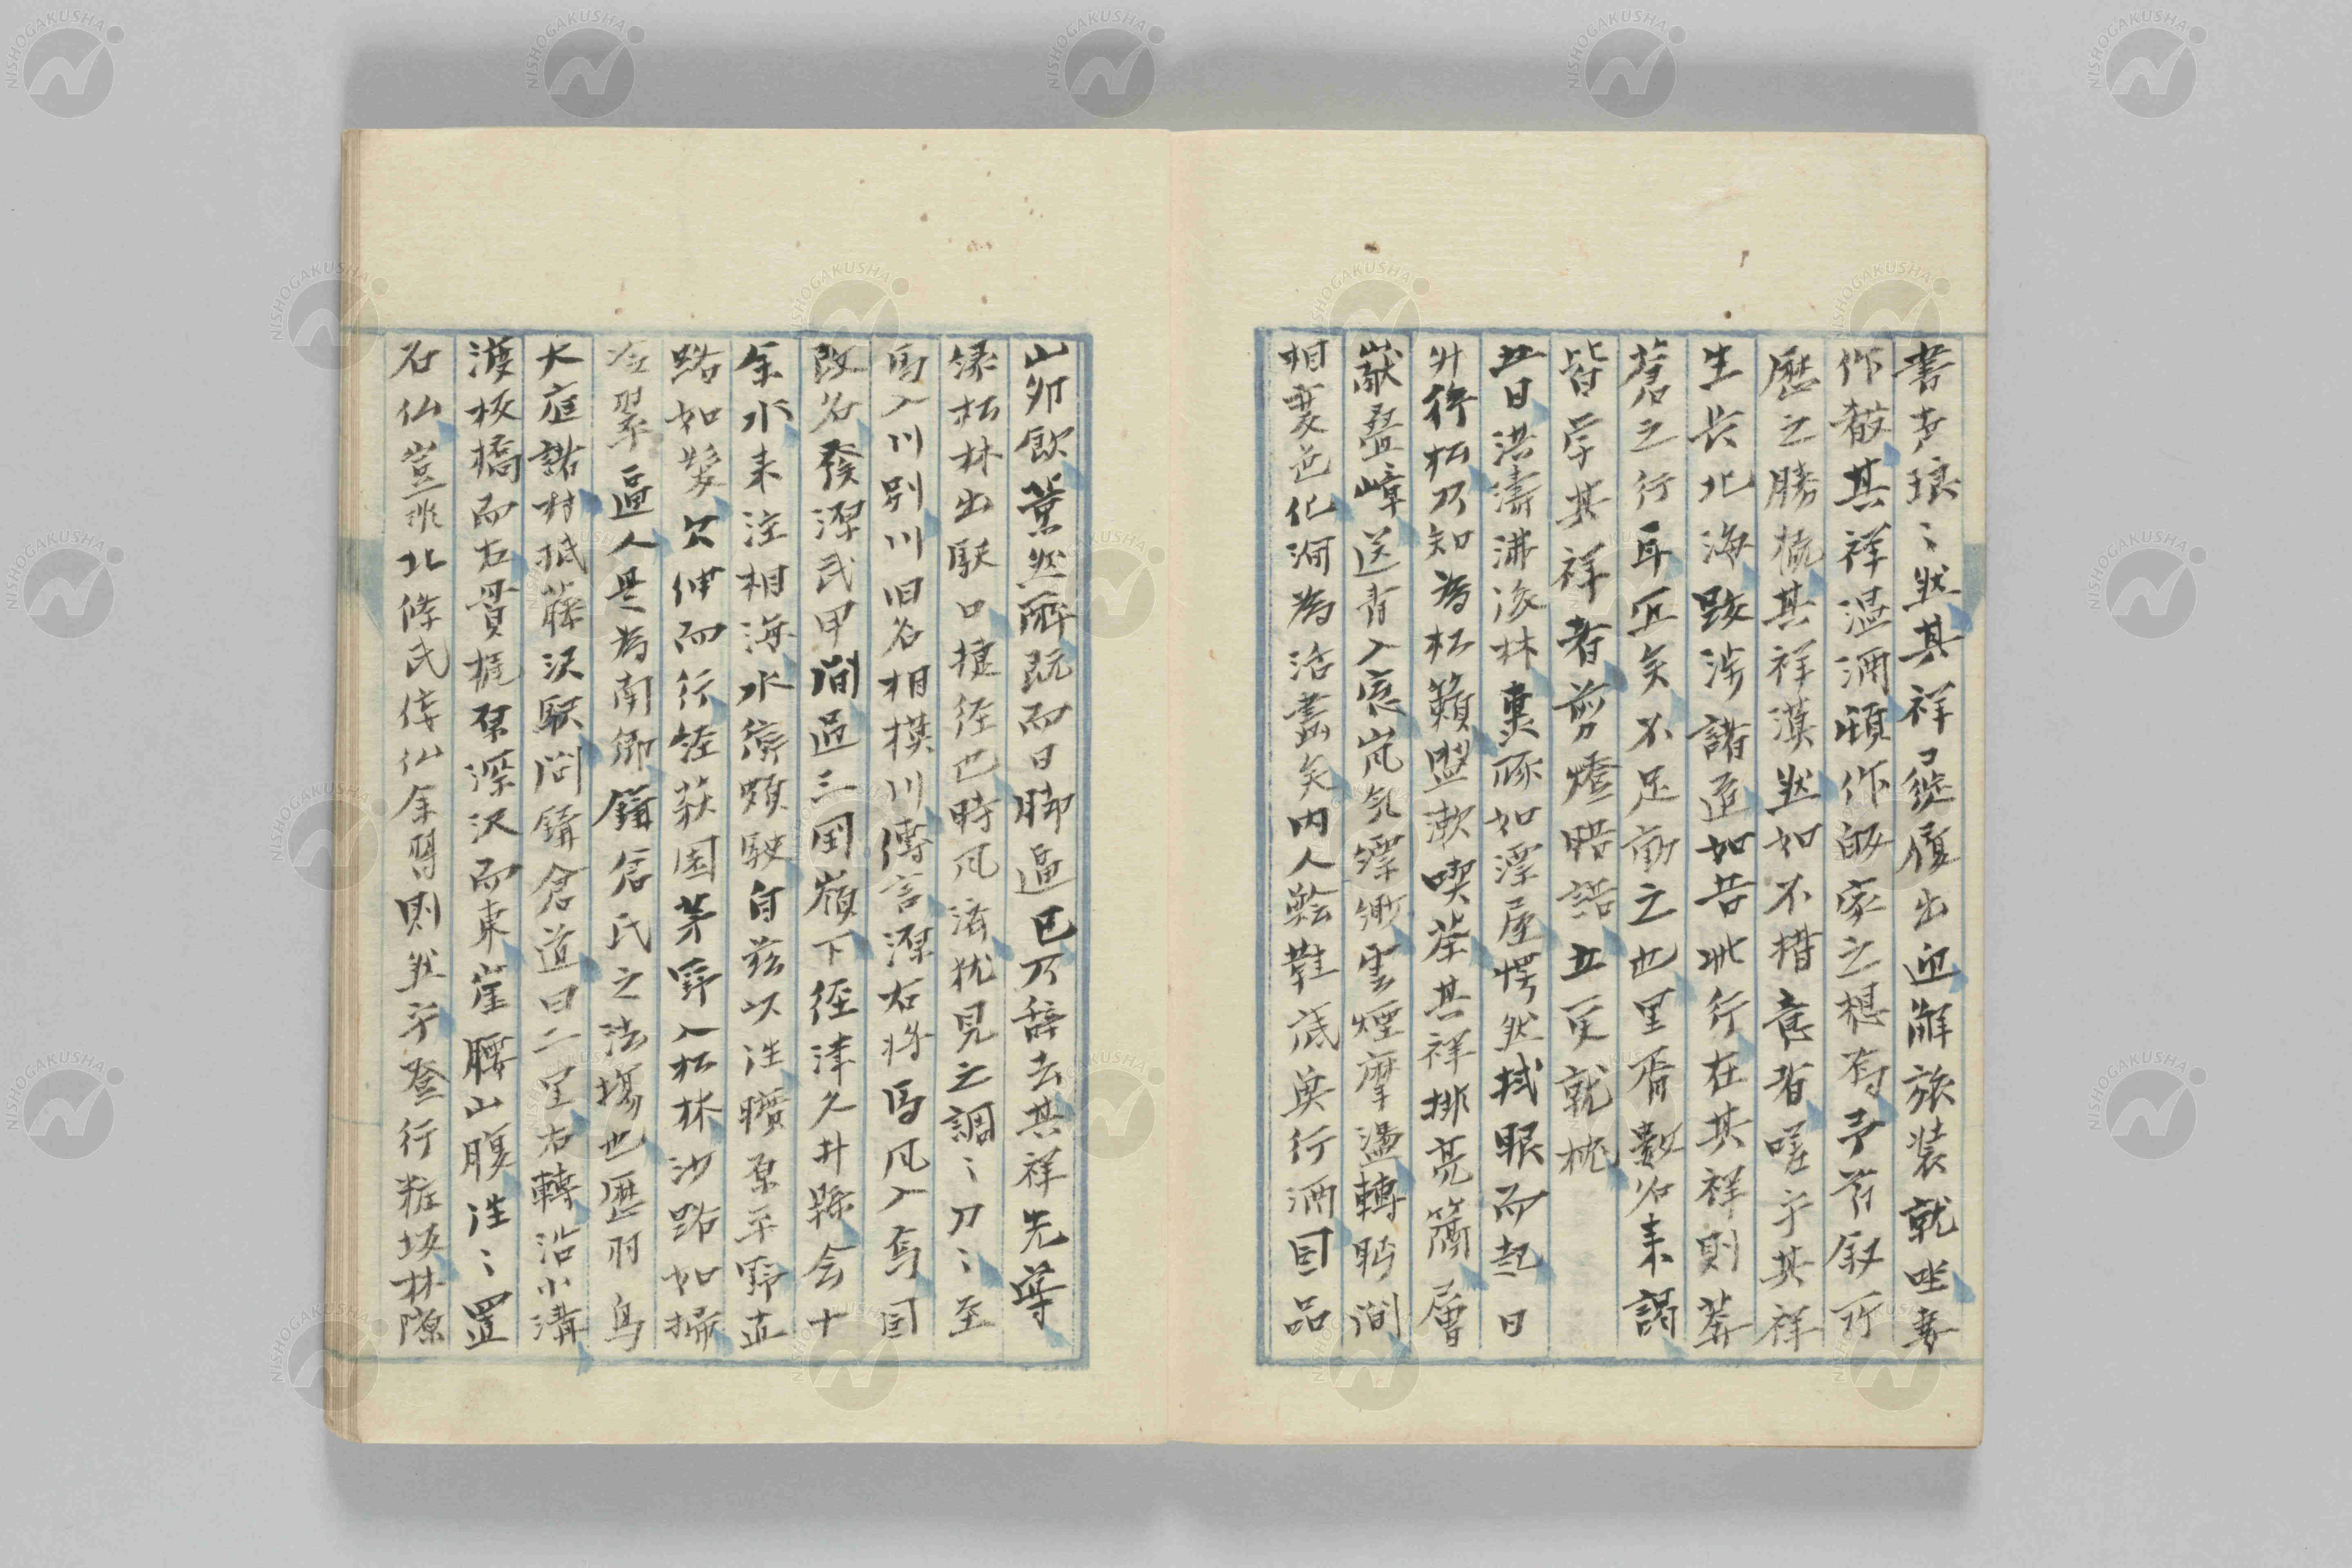 書声琅〻然其祥曳縰履出迎解旅装就坐妻
作殽其祥温酒頓作皈家之想有予前叙所
歴之勝概其祥漠然如不措意者嗟乎其祥
生長北海跋渉諸道如吾此行在其祥則莽
蒼之行耳宜矣不足動之也里胥數名来謁
皆学其祥者剪燈晤語五更就枕
廿日洪濤沸湲林裏豚如漂屋愕然拭眼而起日
升行松乃知為松籟盥漱喫茶其祥排亮簾層
巘疊嶂送青入窓嵐気縹緲雲煙摩盪轉眄間
相変也化洵為活畫矣内人鱠鞋底魚行酒目品
山卯飲薫然酔既而日脚逼巳乃辞去其祥先導
縁松林出駅口捷径巴時凡済猶見之調〻刀〻至
馬入川別川旧名相模川傳言源右将馬凡入焉因
改名發源武甲間過三国嶺下径津久井縣会十
余水来注相海水衡頗駛自茲以往曠原平野直
路如髮欠伸而行经萩園茅野入松林沙路如掃
冷翠逼人是為南郷鎌倉氏之法場也歴羽鳥
大庭諸村抵藤沢駅問鎌倉道曰二里右轉沿小溝
渡板橋而左貫梶原深沢而東崖腰山腹往〻置
石仏豈非北條氏佞仏余習則然乎登行粧坂林隙